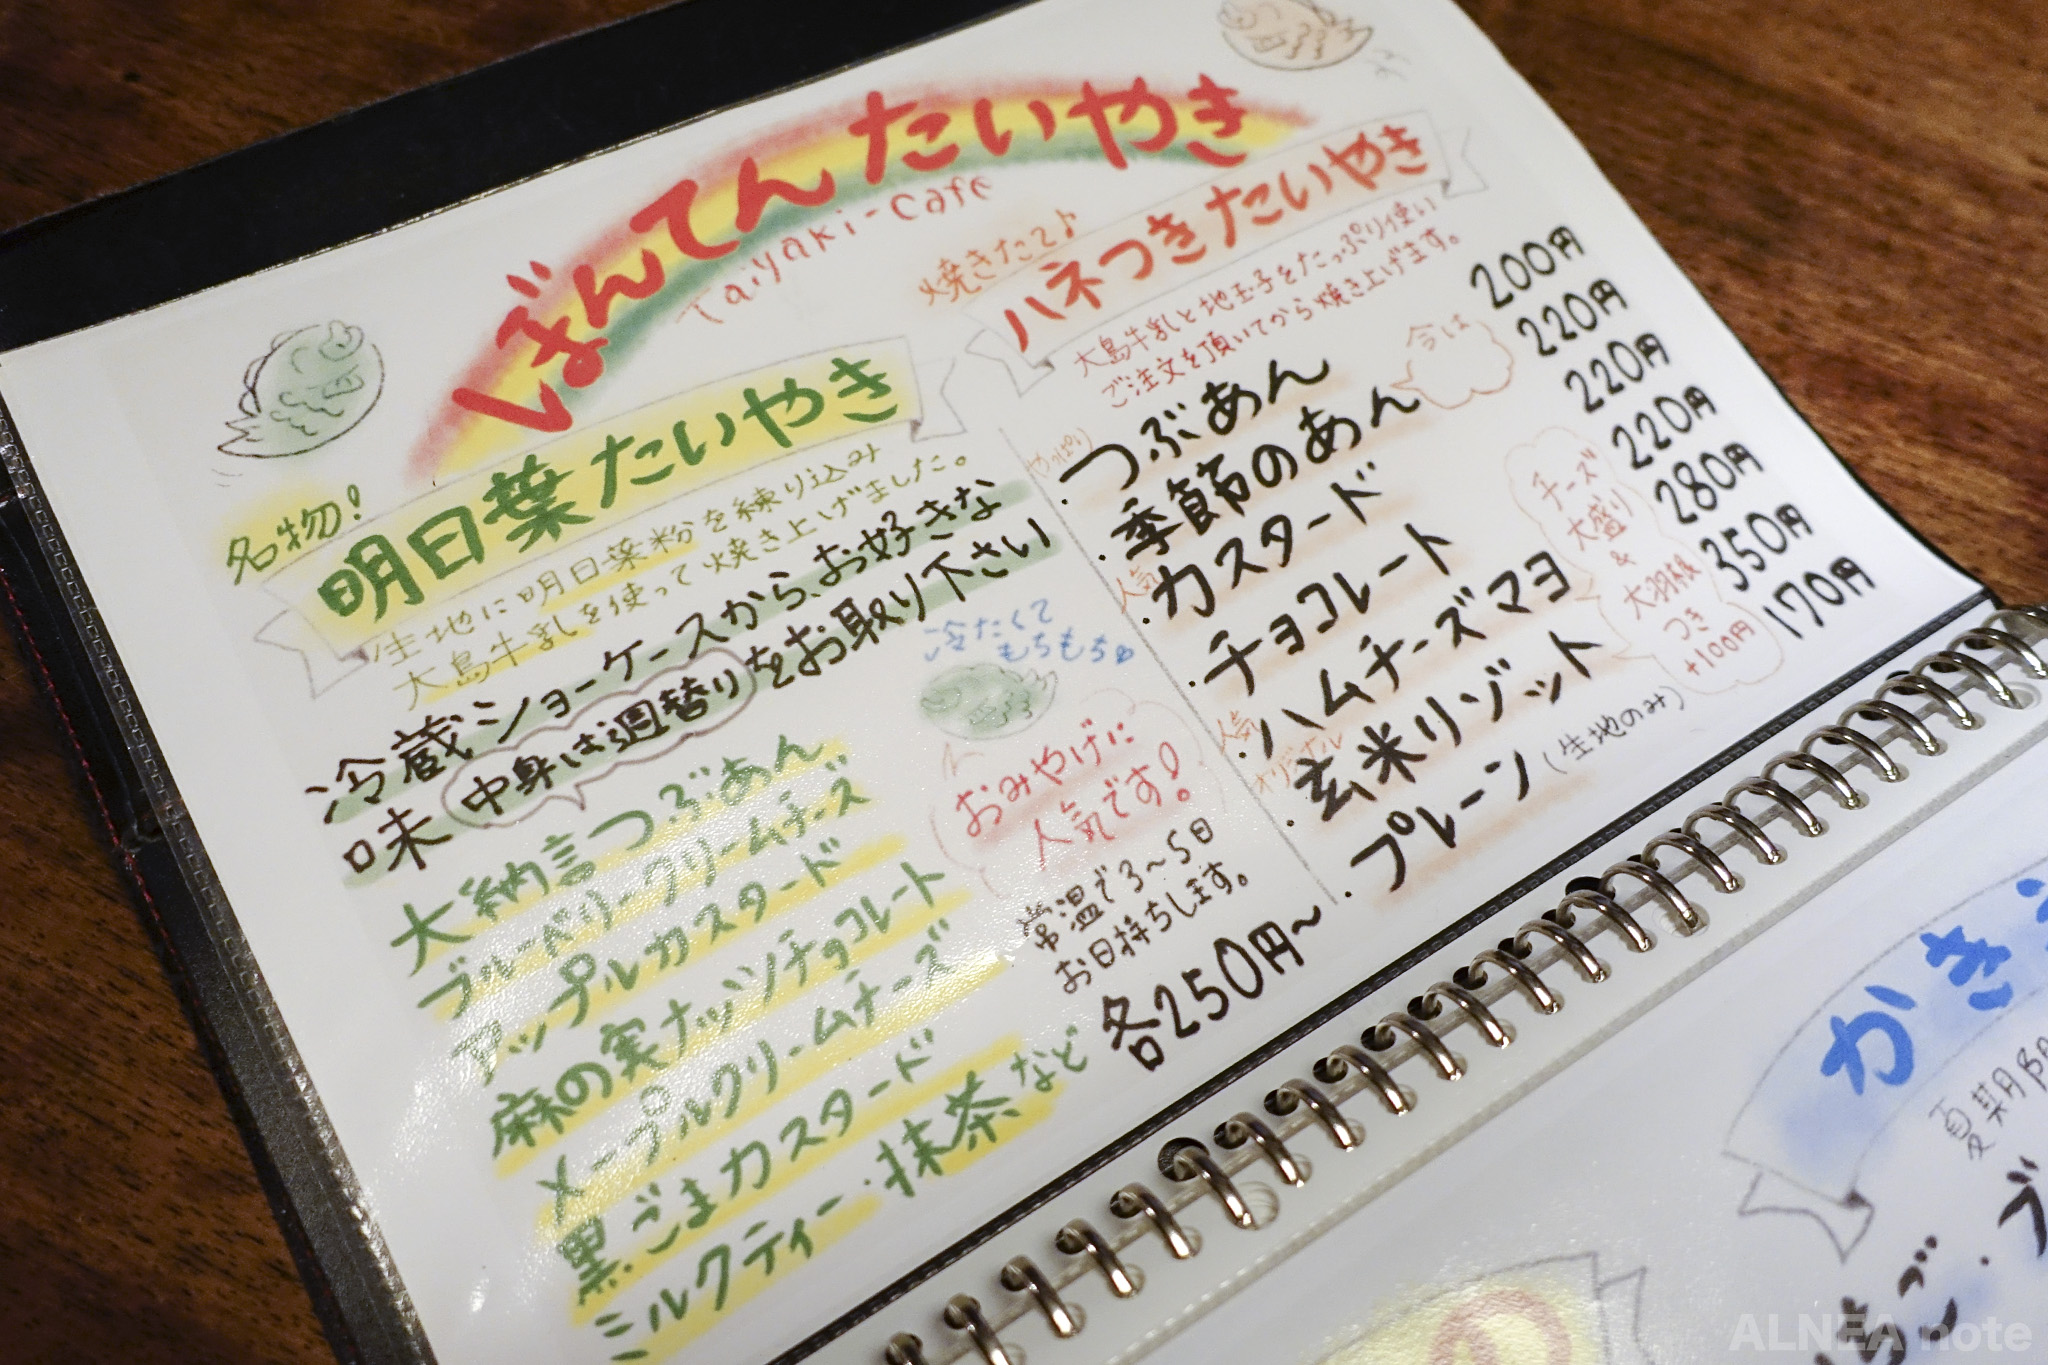 ぼんてんたいやき
Taiyaki-cafe
名物!
明日葉たいやき
生地に明日葉粉を練り込み
大島牛乳を使って焼き上げました。
冷蔵ショーケースから、お好きな
味 中身は週替り をお取り下さい
冷たくて
もちもち
大納言つぶあん
ブルーベリークリームチーズ
アップルカスタード
麻の実ナッツチョコレート
メープルクリームチーズ
黒ごまカスタード
ミルクティー・抹茶 など
おみやげに
人気です!
常温で3～5日
お日持ちします。
各250円～
焼きたて♪
ハネつきたいやき
大島牛乳と地玉子をたっぷり使い
ご注文を頂いてから焼き上げます。
やっぱり
・つぶあん 200円
・季節のあん 今は 220円
人気
・カスタード 220円
・チョコレート 220円
人気
・ハムチーズマヨ 280円
オリジナル
・玄米リゾット 350円
・プレーン(生地のみ) 170円
チーズ
大盛り
&
大羽根
つき
+100円
かき
夏期
ALNEA note